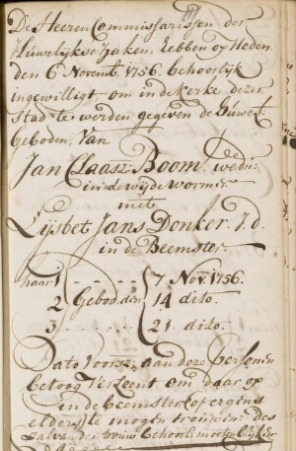 De Heeren Commissarissen der
Huwelijkse Zaken. Hebben op Heden
den 6 Novemb. 1756. behoorlijk
ingewilligt om in de Kerke dezer
Stad te werden gegeven de Huwel:
Geboden, Van
Jan Claasz: Boom. wedr:
in de wijde wormer
met
Lijsbet Jans Donker. J. d.
in de Beemster.
haar 1 7 Nov. 1756.
2 Gebod. den 14 dito.
3 21 dito.
Dato voorsz: aan deze persoonen
betoog verleent om daar op
in de beemster of ergens
elders te mogen trouwen des
zal van den trouw behoorl: moeten blijken